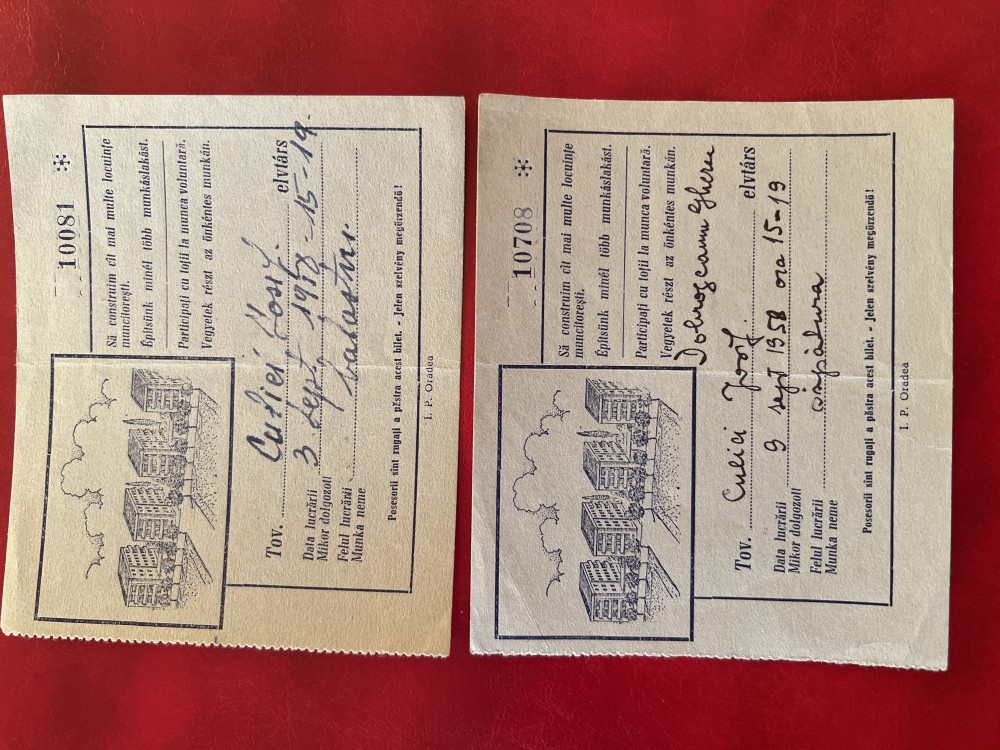 10081 *
Să construim cît mai multe locuințe
muncitorești.
Építsünk minél több munkáslakást.
Participați cu toții la munca voluntară.
Vegyetek részt az önkéntes munkán.
Tov. Culici Iosif. elvtárs
Data lucrării
Mikor dolgozott
3 sept. 1958 - 15-19.
Felul lucrării
Munka neme
Posesorii sînt rugați a păstra acest bilet. - Jelen szelvény megőrzendő!
I. P. Oradea
10708 *
Să construim cît mai multe locuințe
muncitorești.
Építsünk minél több munkáslakást.
Participați cu toții la munca voluntară.
Vegyetek részt az önkéntes munkán.
Dobrogeanu Gherea
Tov. Culici Iosif. elvtárs
Data lucrării
Mikor dolgozott
9 sept 1958 ora 15-19
Felul lucrării
Munka neme
săpătura
Posesorii sînt rugați a păstra acest bilet. - Jelen szelvény megőrzendő!
I. P. Oradea